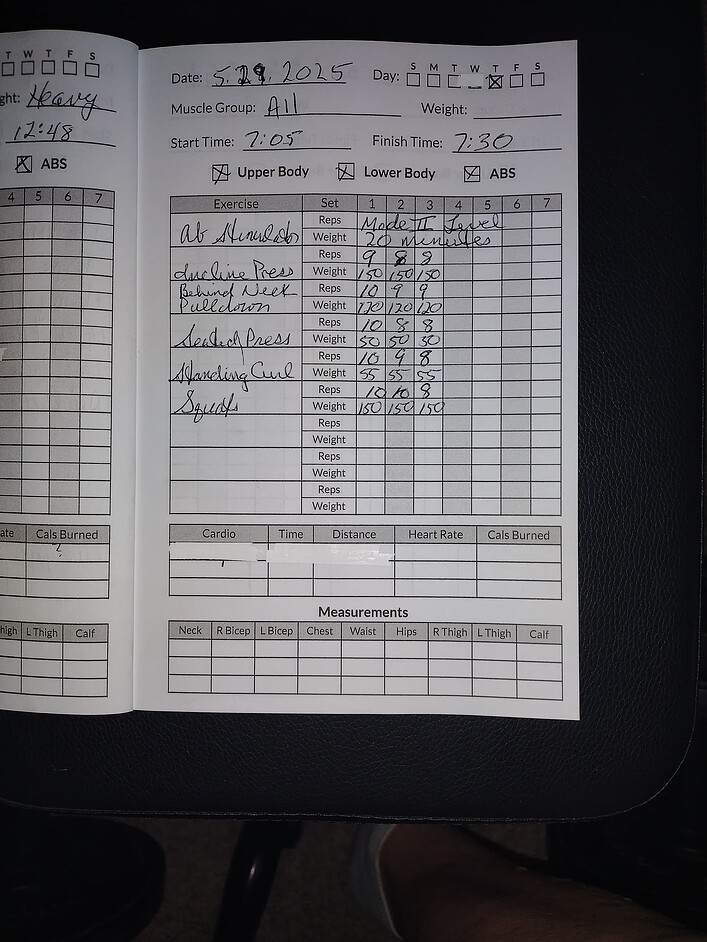 T W T F S
ght: Heavy
12:48
ABS
4 5 6 7
ate Cals Burned
?
high L Thigh Calf
Date: 5.29.2025 Day: S M T W T F S
Muscle Group: All Weight:
Start Time: 7:05 Finish Time: 7:30
Upper Body Lower Body ABS
Exercise Set 1 2 3 4 5 6 7
Reps Mode II Level
Ab Stimulator Weight 20 minutes
Reps 9 8 8
Incline Press Weight 150 150 150
Behind Neck Reps 10 9 9
Pulldown Weight 120 120 120
Reps 10 8 8
Seated Press Weight 50 50 50
Reps 10 9 8
Standing Curl Weight 55 55 55
Reps 10 10 8
Squats Weight 150 150 150
Reps
Weight
Reps
Weight
Reps
Weight
Cardio Time Distance Heart Rate Cals Burned
Measurements
Neck R Bicep L Bicep Chest Waist Hips R Thigh L Thigh Calf